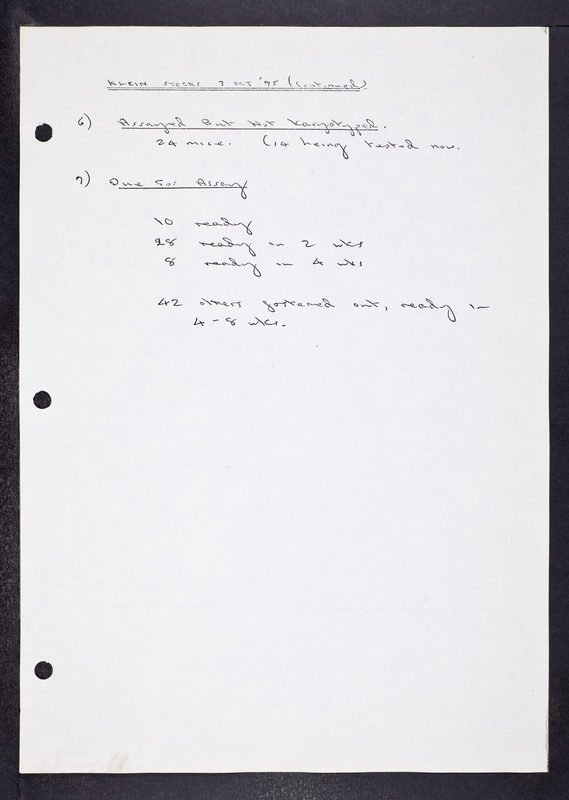 KLEIN STOCKS 3 OCT '75 (continued)
6) Assayed But Not Karyotyped.
24 mice. (14 being tested now.
7) Due for Assay
10 ready
28 ready in 2 wks
8 ready in 4 wks
42 others fostered out, ready in
4-8 wks.